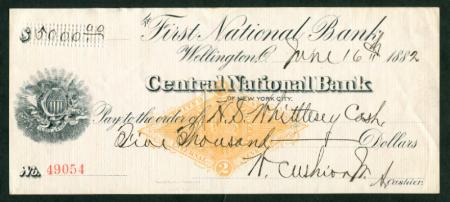 $5000.00
First National Bank,
Wellington, O. June 16th 1882
Central National Bank
OF NEW YORK CITY.
Pay to the order of N. S. Whittlesey Cash.
Five Thousand Dollars
No. 49054
2
W. Cushion Jr.
Cashier.